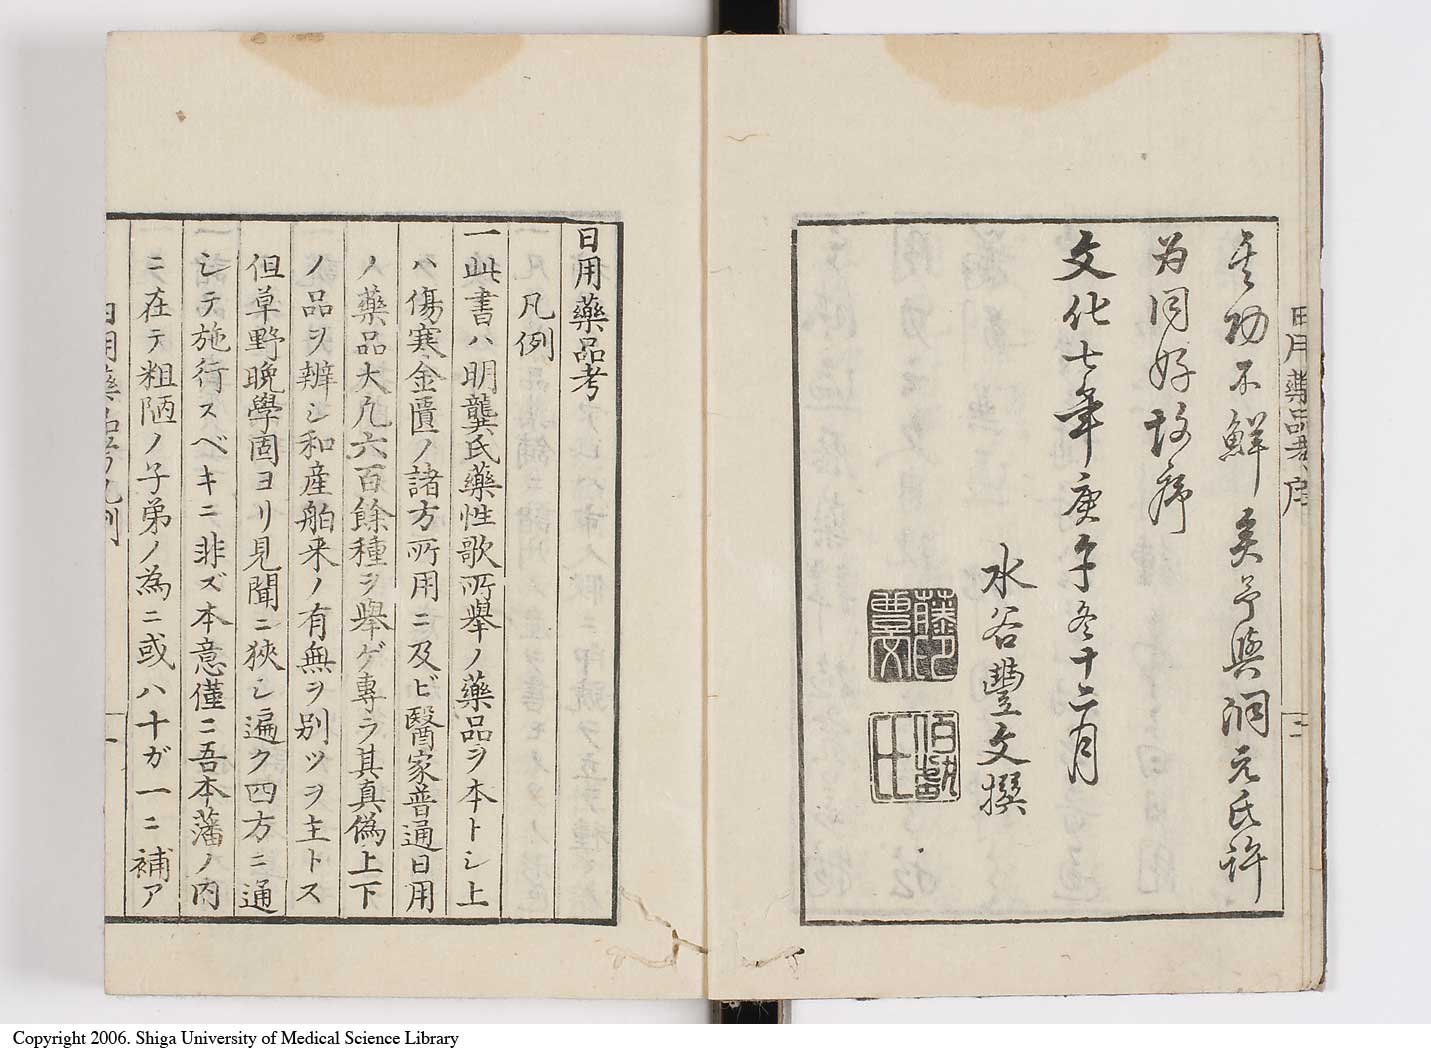 其功不鮮矣予與洞元氏許
為同好故序
文化七年庚午冬十二月
水谷豐文撰
藤印
豊文
伯献
氏
日用藥品考序
二
日用藥品考
凡例
一此書ハ明龔氏藥性歌所舉ノ藥品ヲ本トシ上
ハ傷寒金匱ノ諸方所用ニ及ビ醫家普通日用
ノ藥品大凢六百餘種ヲ舉ゲ專ラ其真偽上下
ノ品ヲ辨シ和産舶来ノ有無ヲ別ツヲ主トス
但草野晩學固ヨリ見聞ニ狹シ遍ク四方ニ通
シテ施行スベキニ非ズ本意僅ニ吾本藩ノ内
ニ在テ粗陋ノ子弟ノ為ニ或ハ十ガ一ニ補ア
日用藥品考凡例
一
Copyright 2006. Shiga University of Medical Science Library